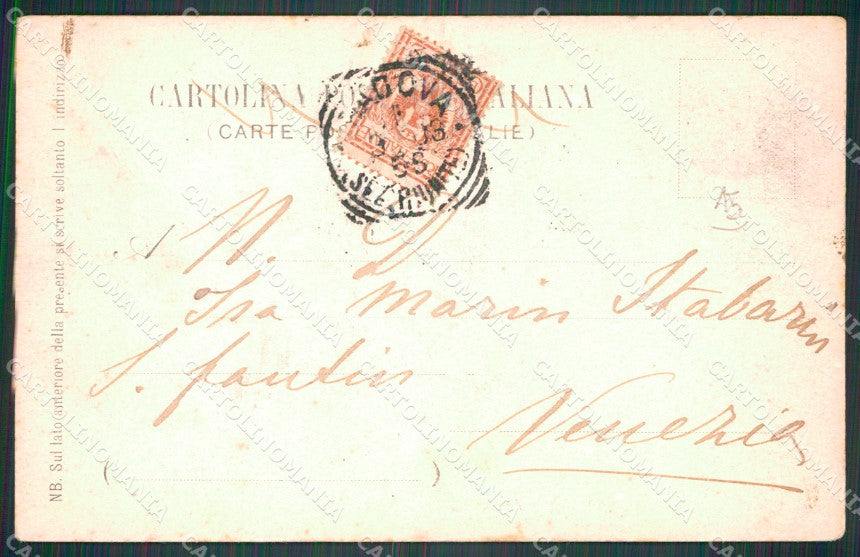 CARTOLINA POS ALIANA
(CARTE POS ALIE)
PADOVA
98
N. D.
Isa Marin Itabarin
S. fantin
Venezia
NB. Sul lato anteriore della presente si scrive soltanto l indirizzo
CARTOLINOMANIA